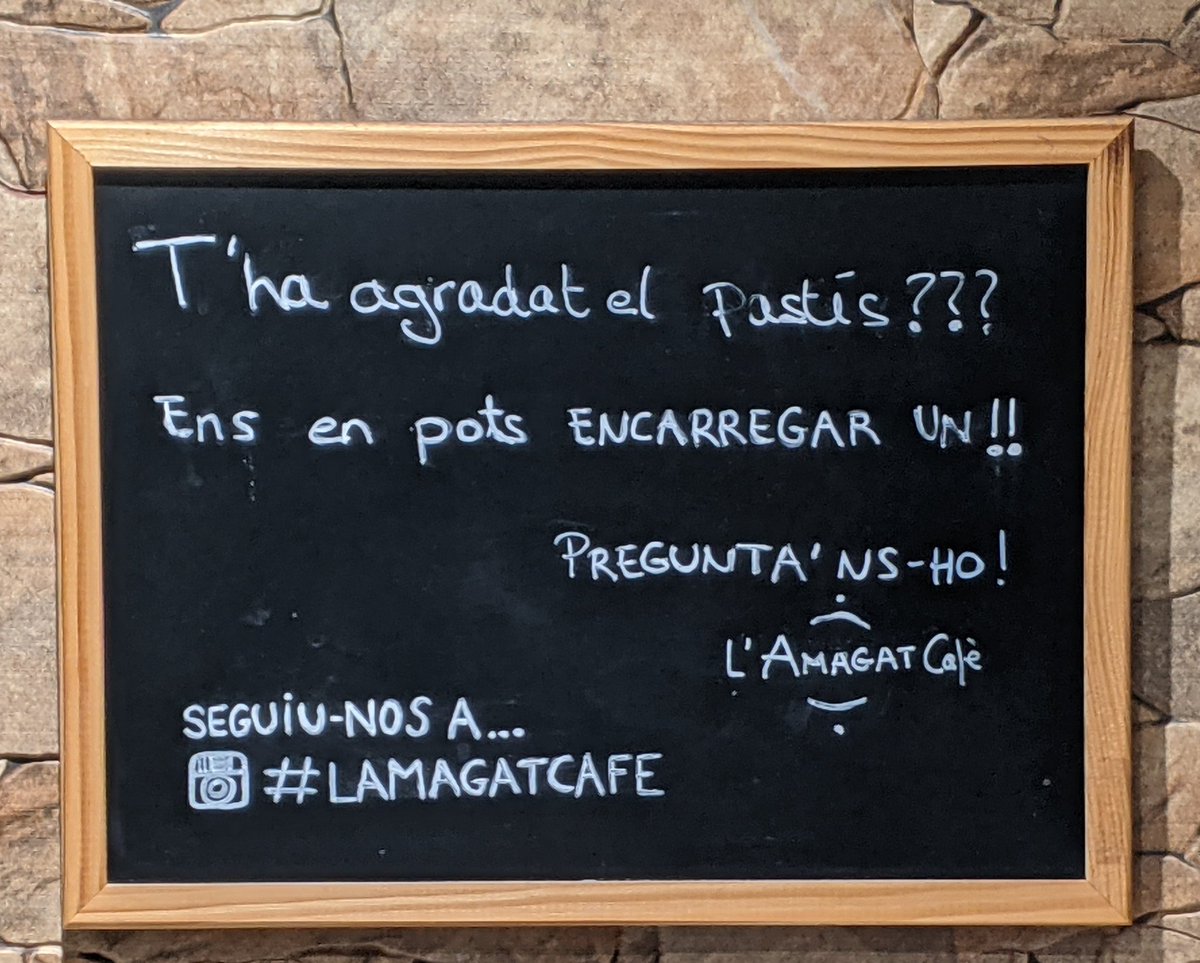 T'ha agradat el Pastís???
Ens en pots ENCARREGAR UN!!
PREGUNTA'NS-HO!
L'AMAGAT Cafè
SEGUIU-NOS A...
#LAMAGATCAFE